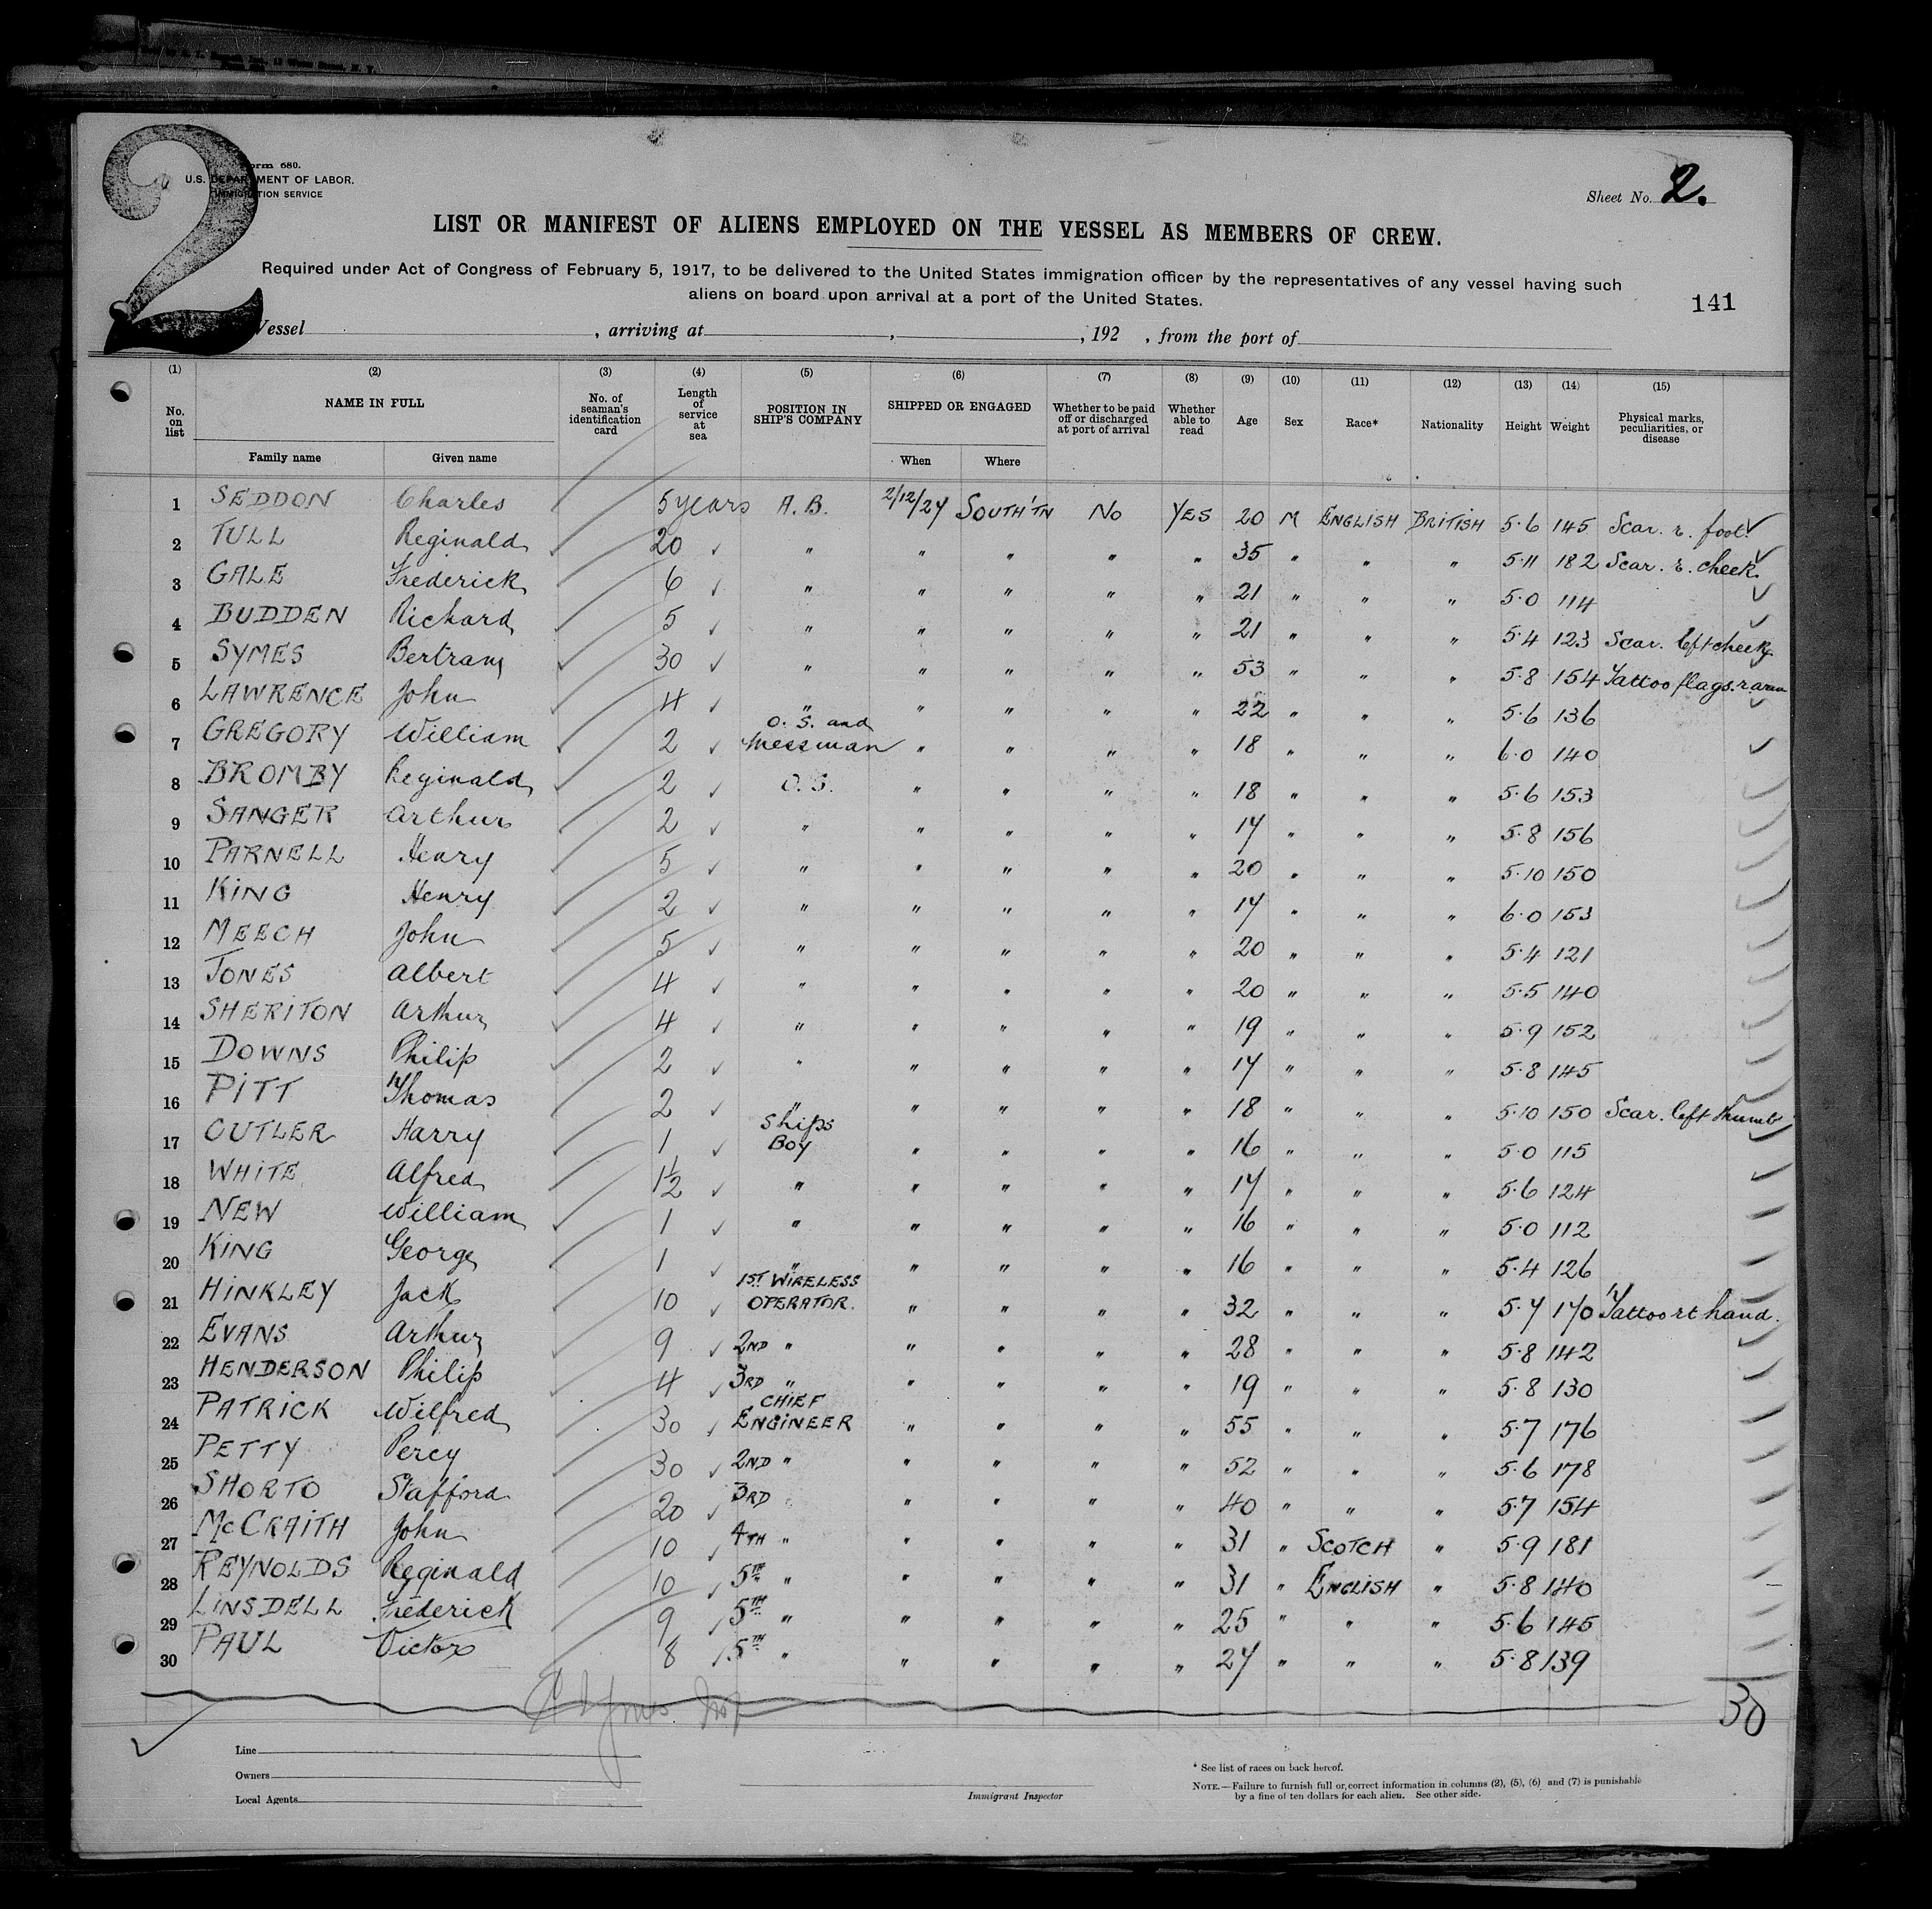 2
Form 680.
U.S. DEPARTMENT OF LABOR.
IMMIGRATION SERVICE
Sheet No. 2.
LIST OR MANIFEST OF ALIENS EMPLOYED ON THE VESSEL AS MEMBERS OF CREW.
Required under Act of Congress of February 5, 1917, to be delivered to the United States immigration officer by the representatives of any vessel having such
aliens on board upon arrival at a port of the United States.
141
Vessel , arriving at , , 192 , from the port of
(1) (2) (3) (4) (5) (6) (7) (8) (9) (10) (11) (12) (13) (14) (15)
No. on list NAME IN FULL No. of seaman's identification card Length of service at sea POSITION IN SHIP'S COMPANY SHIPPED OR ENGAGED Whether to be paid off or discharged at port of arrival Whether able to read Age Sex Race* Nationality Height Weight Physical marks, peculiarities, or disease
Family name Given name When Where
1 SEDDON Charles 5 years A.B. 2/12/24 SOUTH'TN No YES 20 M ENGLISH BRITISH 5.6 145 Scar. r. foot
2 TULL Reginald 20 " " " " " 35 " " " 5.11 182 Scar. r. cheek
3 GALE Frederick 6 " " " " " 21 " " " 5.0 114
4 BUDDEN Richard 5 " " " " " 21 " " " 5.4 123 Scar. left cheek
5 SYMES Bertram 30 " " " " " 53 " " " 5.8 154 Tattoo flags. r. arm
6 LAWRENCE John 4 " " " " " 22 " " " 5.6 136
7 GREGORY William 2 O. S. and Messman " " " " 18 " " " 6.0 140
8 BROMBY Reginald 2 O.S. " " " " 18 " " " 5.6 153
9 SANGER Arthur 2 " " " " " 17 " " " 5.8 156
10 PARNELL Henry 5 " " " " " 20 " " " 5.10 150
11 KING Henry 2 " " " " " 17 " " " 6.0 153
12 MEECH John 5 " " " " " 20 " " " 5.4 121
13 JONES Albert 4 " " " " " 20 " " " 5.5 140
14 SHERITON Arthur 4 " " " " " 19 " " " 5.9 152
15 DOWNS Philip 2 " " " " " 17 " " " 5.8 145
16 PITT Thomas 2 " " " " " 18 " " " 5.10 150 Scar. left thumb
17 CUTLER Harry 1 Ships Boy " " " " 16 " " " 5.0 115
18 WHITE Alfred 1½ " " " " " 17 " " " 5.6 124
19 NEW William 1 " " " " " 16 " " " 5.0 112
20 KING George 1 " " " " " 16 " " " 5.4 126
21 HINKLEY Jack 10 1ST WIRELESS OPERATOR. " " " " 32 " " " 5.7 170 Tattoo rt hand.
22 EVANS Arthur 9 2ND " " " " " 28 " " " 5.8 142
23 HENDERSON Philip 4 3RD " " " " " 19 " " " 5.8 130
24 PATRICK Wilfred 30 CHIEF ENGINEER " " " " 55 " " " 5.7 176
25 PETTY Percy 30 2ND " " " " " 52 " " " 5.6 178
26 SHORTO Stafford 20 3RD " " " " 40 " " " 5.7 154
27 McCRAITH John 10 4TH " " " " " 31 " SCOTCH " 5.9 181
28 REYNOLDS Reginald 10 5TH " " " " " 31 " ENGLISH " 5.8 140
29 LINSDELL Frederick 9 5TH " " " " " 25 " " " 5.6 145
30 PAUL Victor 8 5TH " " " " " 27 " " " 5.8 139
30
Line
Owners
Local Agents
Immigrant Inspector
* See list of races on back hereof.
NOTE.—Failure to furnish full or correct information in columns (2), (5), (6) and (7) is punishable
by a fine of ten dollars for each alien. See other side.